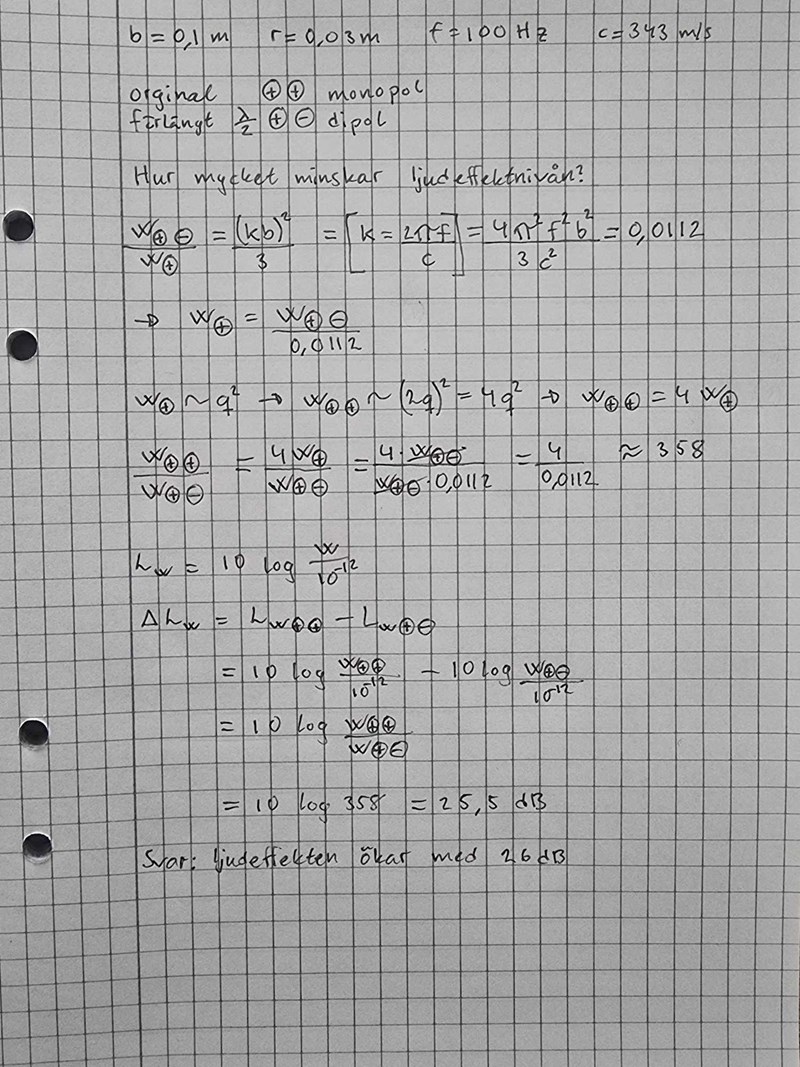 b = 0,1 m r = 0,03 m f = 100 Hz c = 343 m/s
orginal ⊕⊕ monopol
förlängt λ/2 ⊕⊖ dipol
Hur mycket minskar ljudeffektnivån?
W⊕⊖/W⊕ = (kb)²/3 = [k = 2πf/c] = 4π²f²b²/3c² = 0,0112
→ W⊕ = W⊕⊖/0,0112
W⊕ ~ q² → W⊕⊕ ~ (2q)² = 4q² → W⊕⊕ = 4 W⊕
W⊕⊕/W⊕⊖ = 4W⊕/W⊕⊖ = 4·W⊕⊖/W⊕⊖·0,0112 = 4/0,0112 ≈ 358
Lw = 10 log W/10⁻¹²
ΔLw = Lw⊕⊕ - Lw⊕⊖
= 10 log W⊕⊕/10⁻¹² - 10 log W⊕⊖/10⁻¹²
= 10 log W⊕⊕/W⊕⊖
= 10 log 358 = 25,5 dB
Svar: ljudeffekten ökar med 26 dB